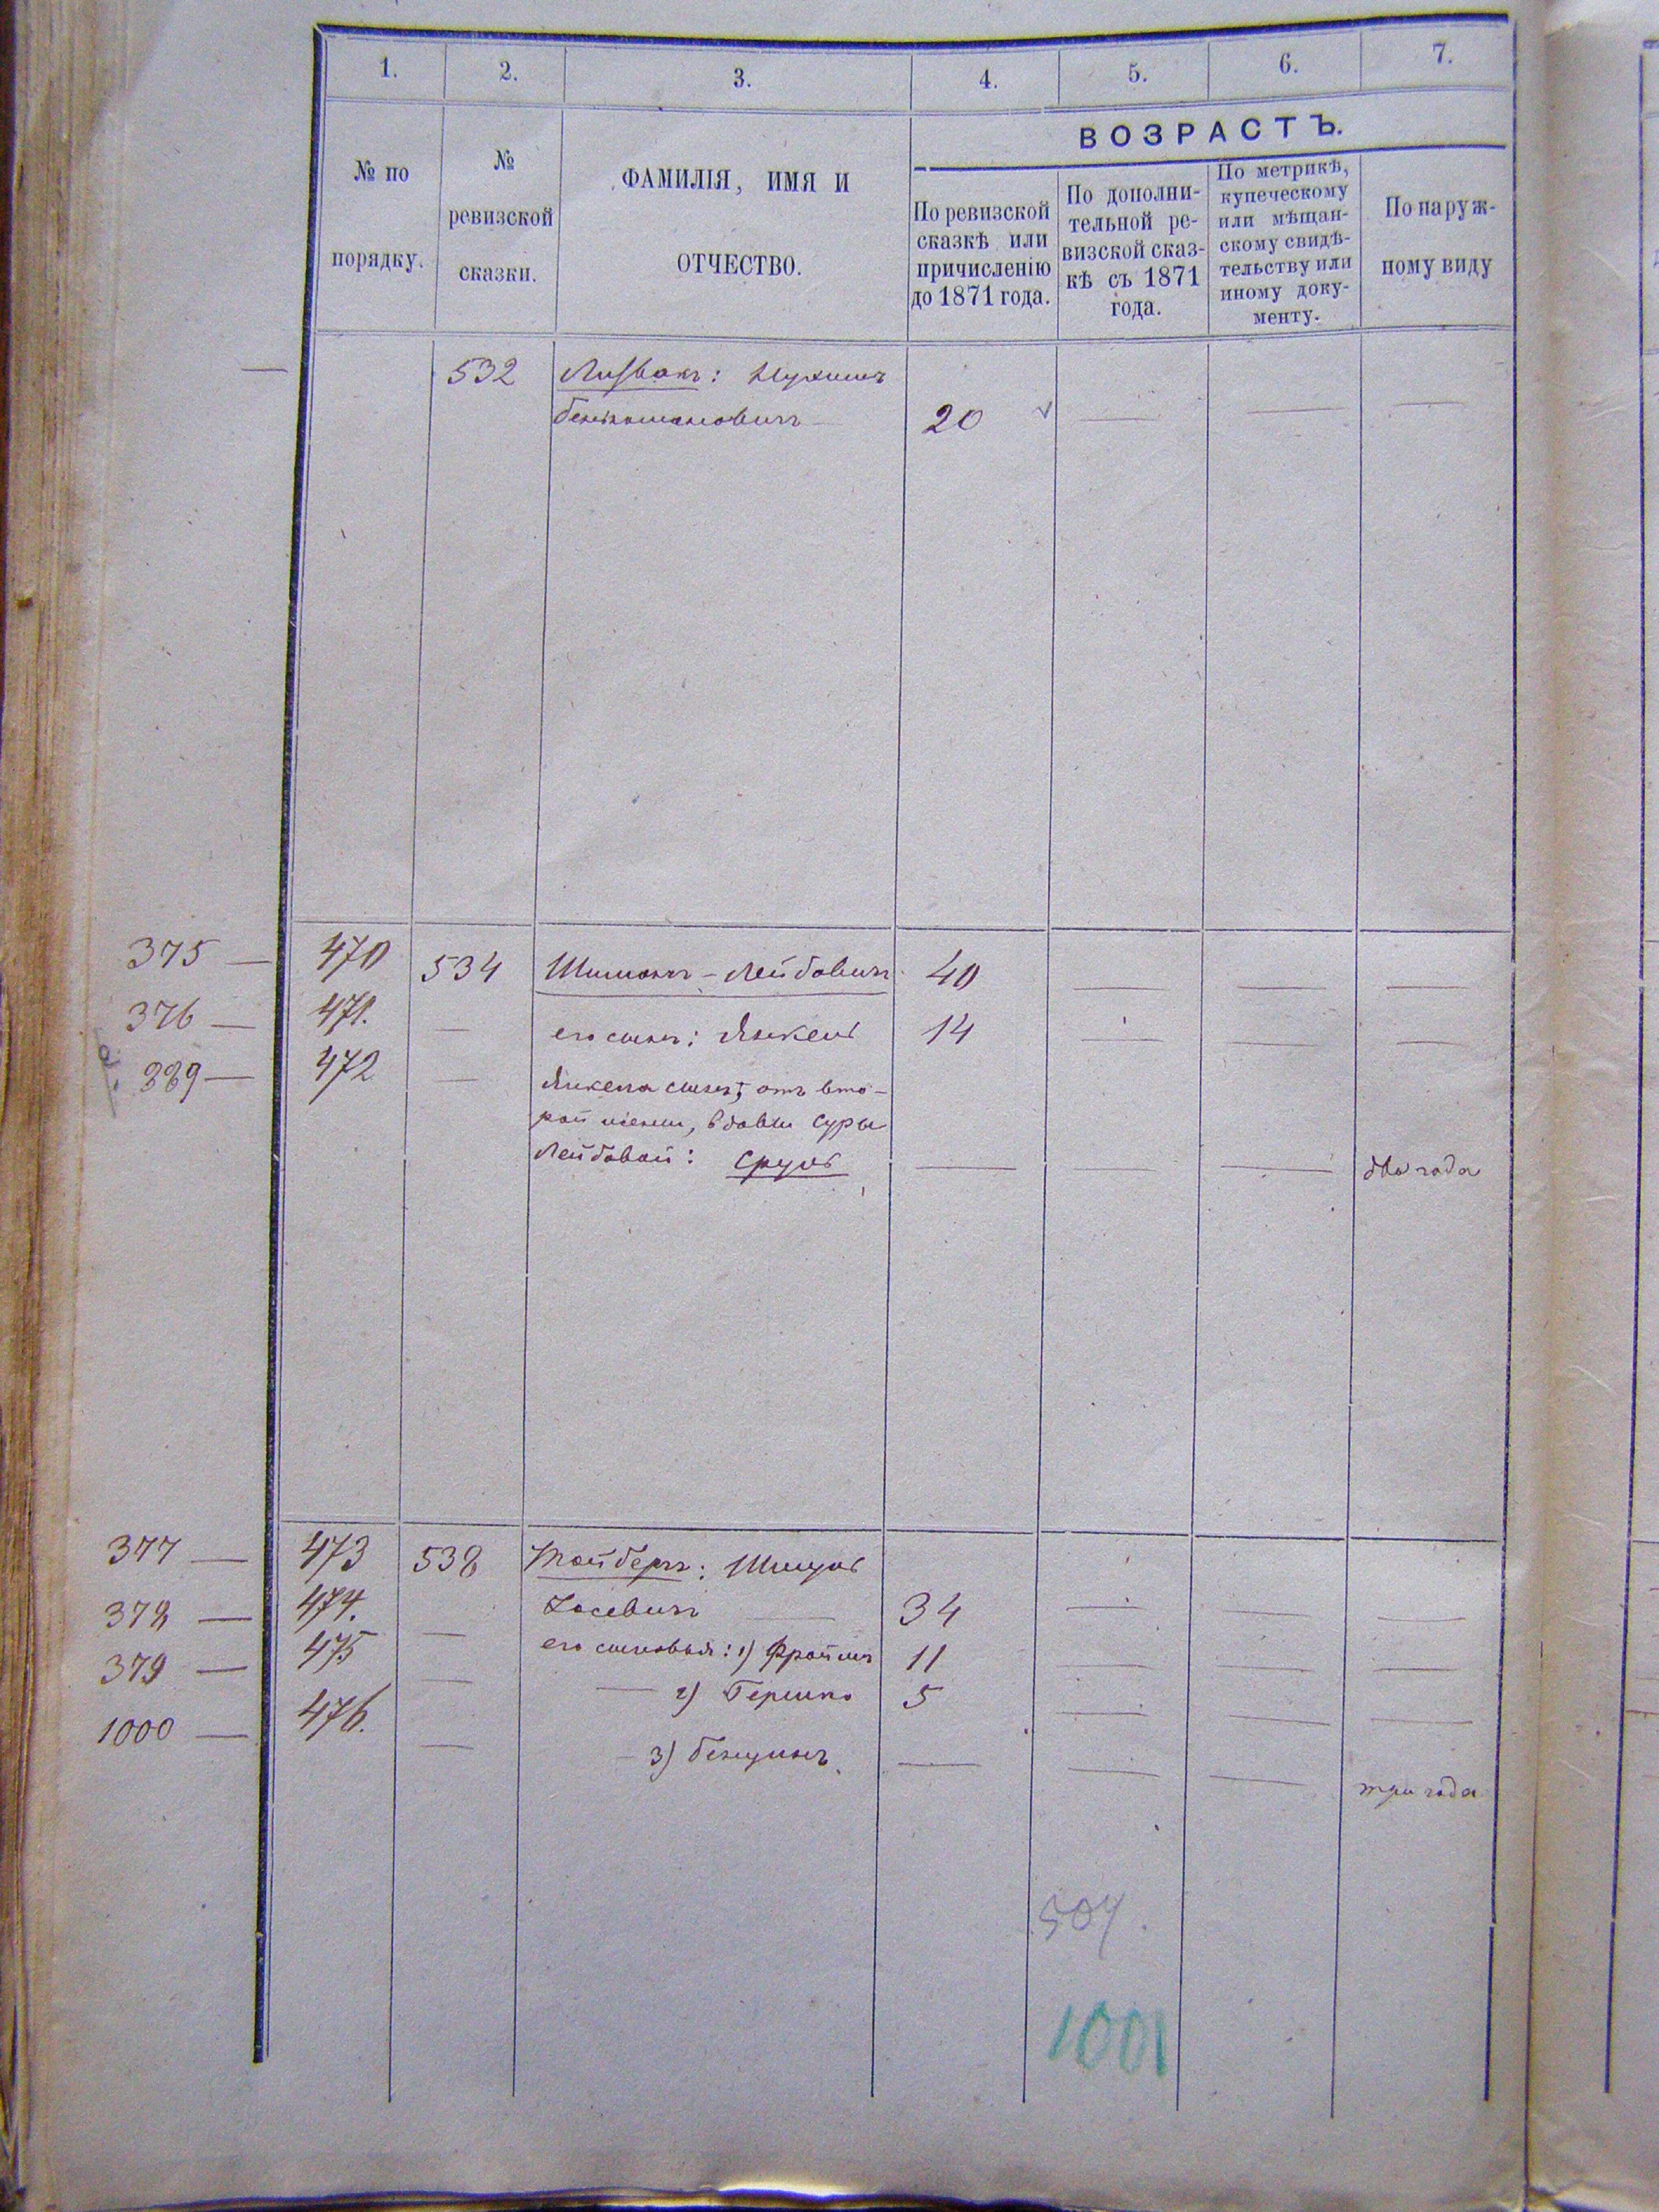 1. 2. 3. 4. 5. 6. 7.
ВОЗРАСТЪ.
№ по
порядку.
№
ревизской
сказки.
ФАМИЛІЯ, ИМЯ И
ОТЧЕСТВО.
По ревизской
сказкѣ или
причисленію
до 1871 года.
По дополни-
тельной ре-
визской сказ-
кѣ съ 1871
года.
По метрикѣ,
купеческому
или мѣщан-
скому свидѣ-
тельству или
иному доку-
менту.
По наруж-
ному виду
— 532 Литвакъ: Нухимъ
20 — — —
375 — 470 534 Шимонъ - Лейбовичъ 40 — — —
376 — 471. — его сынъ: Янкель 14 — — —
389 — 472 — Янкеля сынъ, отъ вто-
рой жены, вдовы Суры
Лейбовой: Сруль — — — два года
377 — 473 538 Тайберъ: Шмуль
378 — 474. Іосевичъ — 34 — — —
379 — 475 — его сыновья: 1) Фроимъ 11 — — —
1000 — 476. — — 2) Гершко 5 — — —
— — 3) Бенцинъ. — — — три года
504.
1001